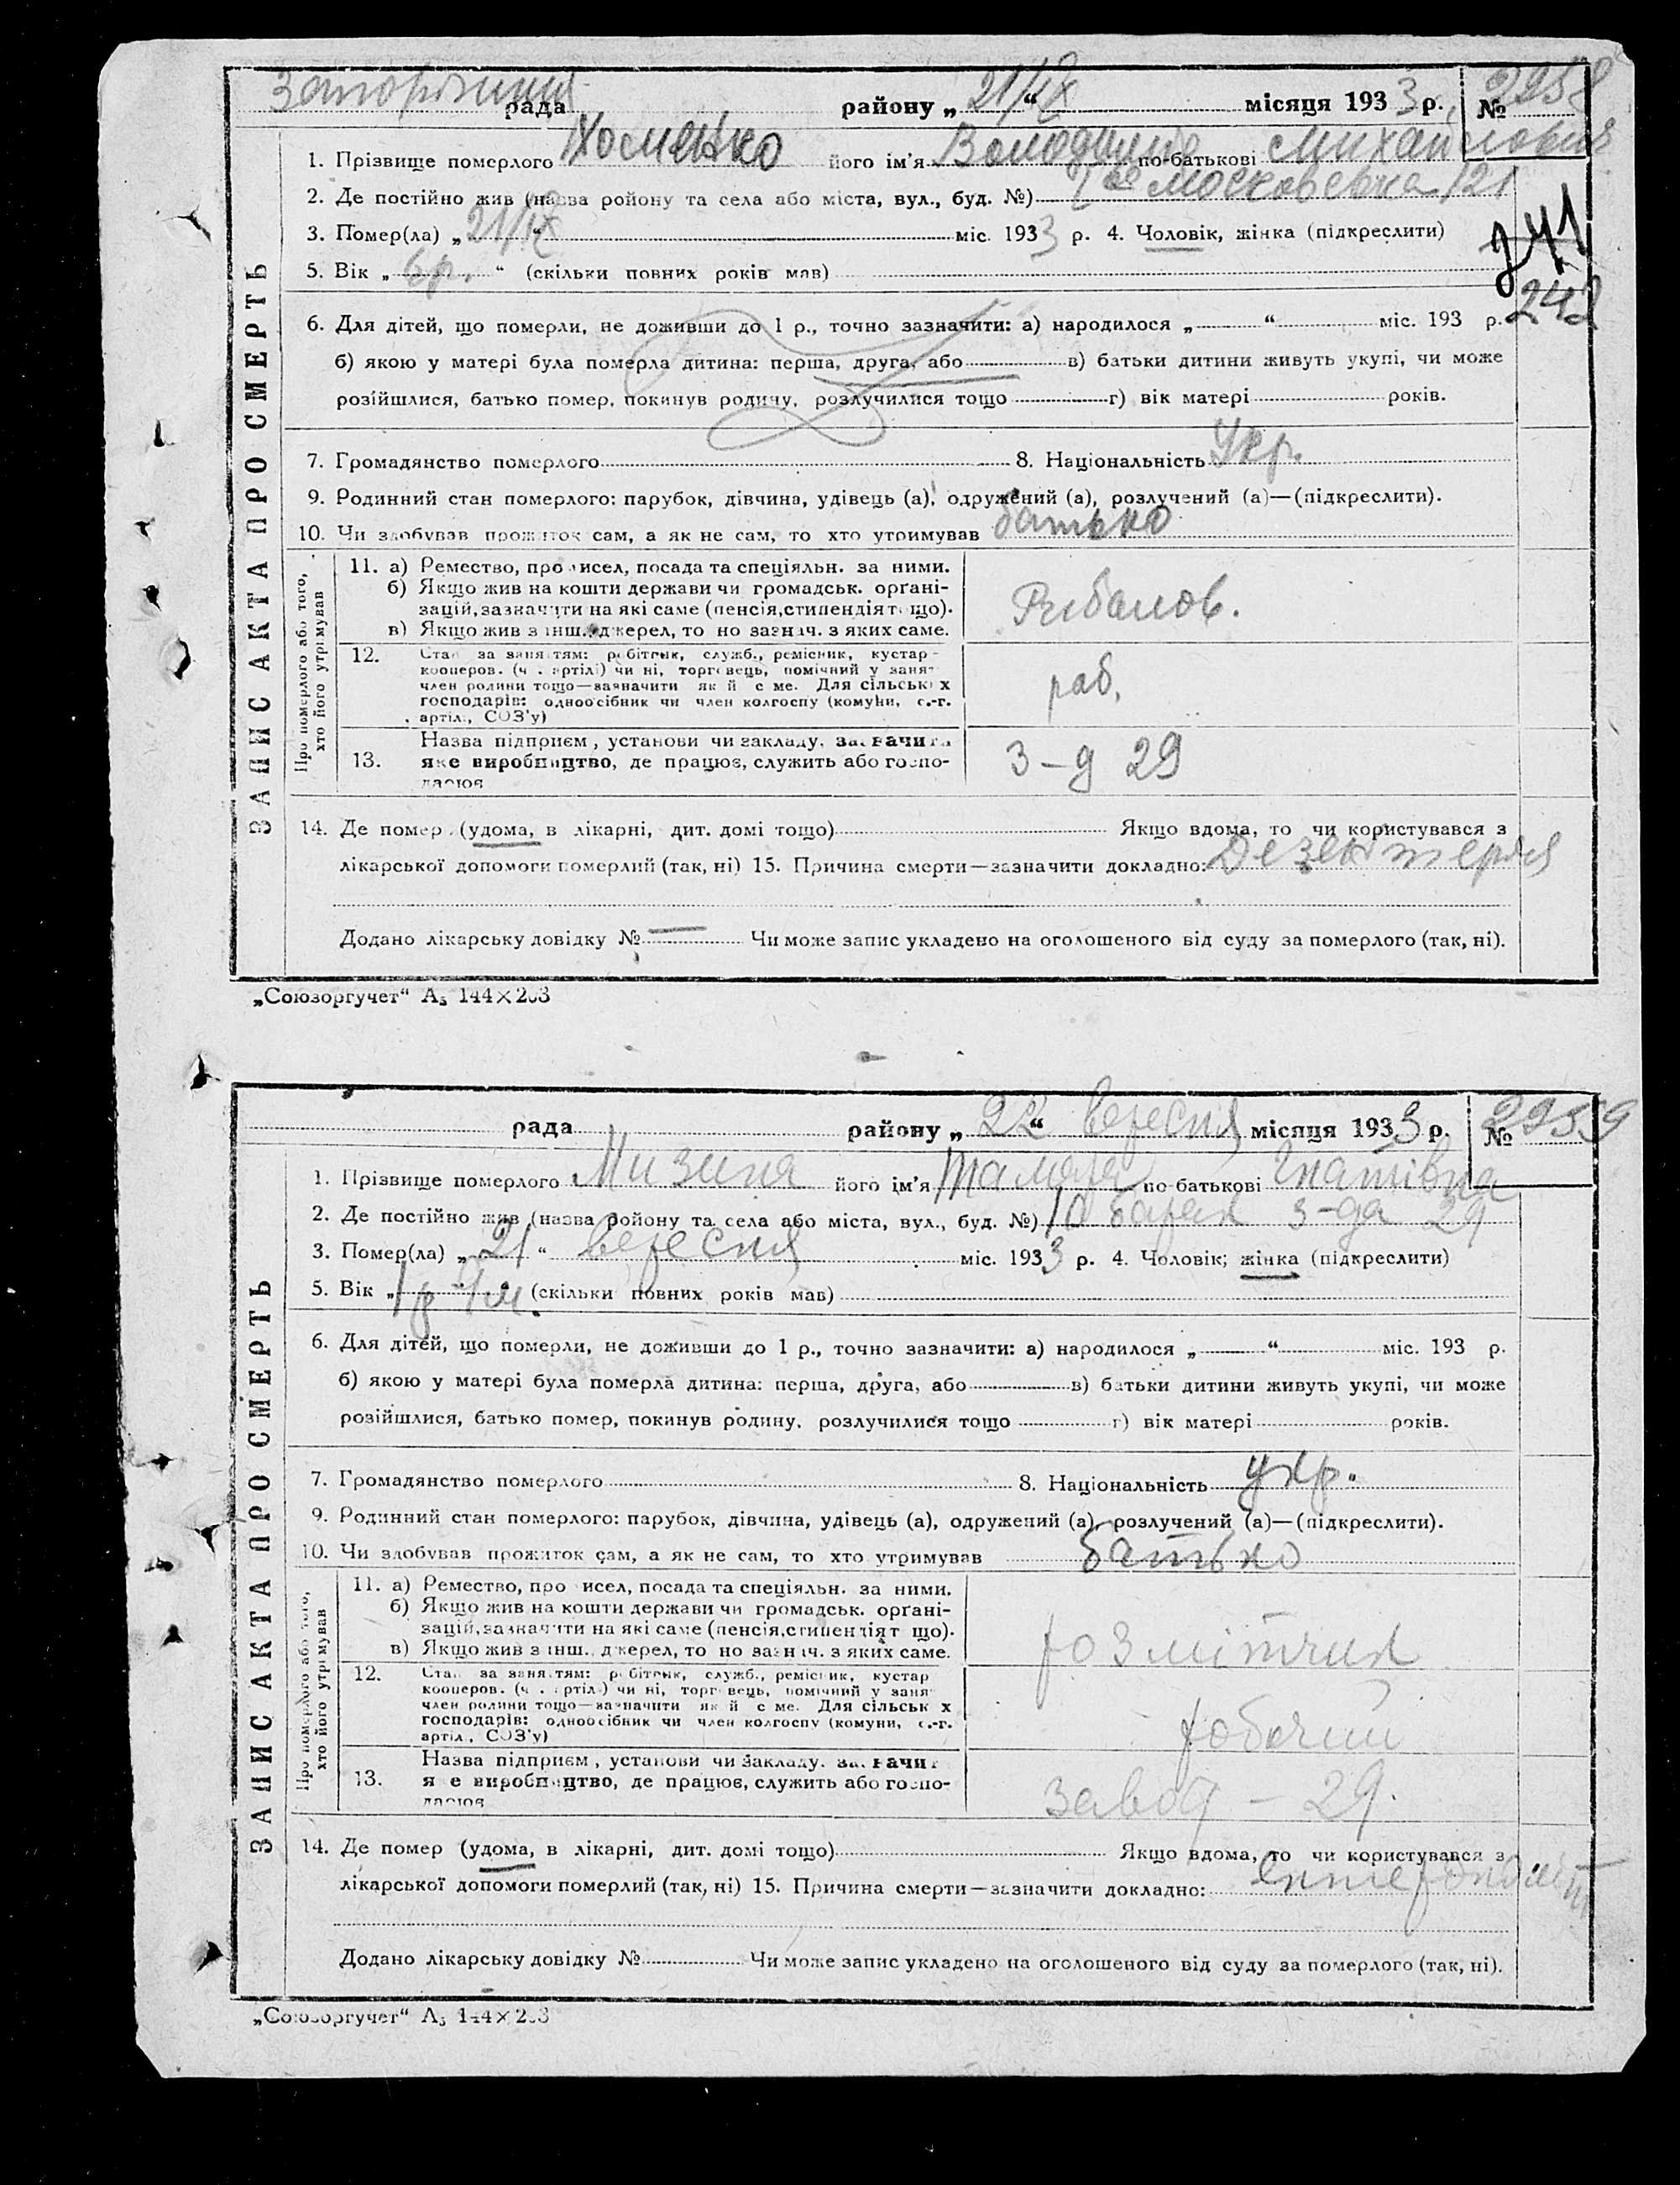 Запорізька рада району „ 21/IX “ місяця 1933 р. № 2958
1. Прізвище померлого Хоменко його ім'я Володимир по-батькові Михайлович
2. Де постійно жив (назва ройону та села або міста, вул., буд. №) Московська 121
3. Помер(ла) „ 21/IX “ міс. 1933 р. 4. Чоловік, жінка (підкреслити)
241
5. Вік „ 6 р. “ (скільки повних років мав)
242
6. Для дітей, що померли, не доживши до 1 р., точно зазначити: а) народилося „ “ міс. 193 р.
б) якою у матері була померла дитина: перша, друга, або в) батьки дитини живуть укупі, чи може
розійшлися, батько помер, покинув родину, розлучилися тощо г) вік матері років.
7. Громадянство померлого 8. Національність Укр.
9. Родинний стан померлого: парубок, дівчина, удівець (а), одружений (а), розлучений (а)—(підкреслити).
10. Чи здобував прожиток сам, а як не сам, то хто утримував батько
ЗАПИС АКТА ПРО СМЕРТЬ
Про померлого або того, хто його утримував
11. а) Ремество, промисел, посада та спеціяльн. за ними.
б) Якщо жив на кошти держави чи громадськ. орґані-
зацій, зазначити на які саме (пенсія, стипендія тощо).
в) Якщо жив з інш. джерел, то но зазнач. з яких саме.
12. Стан за заняттям: робітник, служб., ремісник, кустар-
кооперов. (ч. артілі) чи ні, торговець, помічний у занят
член родини тощо—зазначити який с ме. Для сільських
господарів: одноосібник чи член колгоспу (комуни, с.-г.
артілі, СОЗ'у)
раб.
13. Назва підприєм., установи чи закладу, зазначити
яке виробництво, де працює, служить або госпо-
дарює
з-д 29
14. Де помер (удома, в лікарні, дит. домі тощо) Якщо вдома, то чи користувався з
лікарської допомоги померлий (так, ні) 15. Причина смерти—зазначити докладно: Дезектерия
Додано лікарську довідку № — Чи може запис укладено на оголошеного від суду за померлого (так, ні).
„Союзоргучет“ А5 144×203
рада району „ 22 “ вересня місяця 1933 р. № 2959
1. Прізвище померлого Мизина його ім'я Тамара по-батькові Гнатівна
2. Де постійно жив (назва ройону та села або міста, вул., буд. №) 10 барак з-да 29
3. Помер(ла) „ 21 “ вересня міс. 1933 р. 4. Чоловік; жінка (підкреслити)
5. Вік „ 1 р (скільки повних років мав)
6. Для дітей, що померли, не доживши до 1 р., точно зазначити: а) народилося „ “ міс. 193 р.
б) якою у матері була померла дитина: перша, друга, або в) батьки дитини живуть укупі, чи може
розійшлися, батько помер, покинув родину, розлучилися тощо г) вік матері років.
7. Громадянство померлого 8. Національність укр.
9. Родинний стан померлого: парубок, дівчина, удівець (а), одружений (а), розлучений (а)—(підкреслити).
10. Чи здобував прожиток сам, а як не сам, то хто утримував батько
ЗАПИС АКТА ПРО СМЕРТЬ
Про померлого або того, хто його утримував
11. а) Ремество, промисел, посада та спеціяльн. за ними.
б) Якщо жив на кошти держави чи громадськ. орґані-
зацій, зазначити на які саме (пенсія, стипендія тощо).
в) Якщо жив з інш. джерел, то но зазнач. з яких саме.
розмітчик
12. Стан за заняттям: робітник, служб., ремісник, кустар
кооперов. (ч. артілі) чи ні, торговець, помічний у заня
член родини тощо—зазначити який с ме. Для сільськ х
господарів: одноосібник чи член колгоспу (комуни, с.-г.
артіл., СОЗ'у)
робочий
13. Назва підприєм., установи чи закладу, зазначит
яке виробництво, де працює, служить або госпо-
дарює
завод – 29.
14. Де помер (удома, в лікарні, дит. домі тощо) Якщо вдома, то чи користувався з
лікарської допомоги померлий (так, ні) 15. Причина смерти—зазначити докладно: ентероколіт
Додано лікарську довідку № Чи може запис укладено на оголошеного від суду за померлого (так, ні).
„Союзоргучет“ А5 144×203